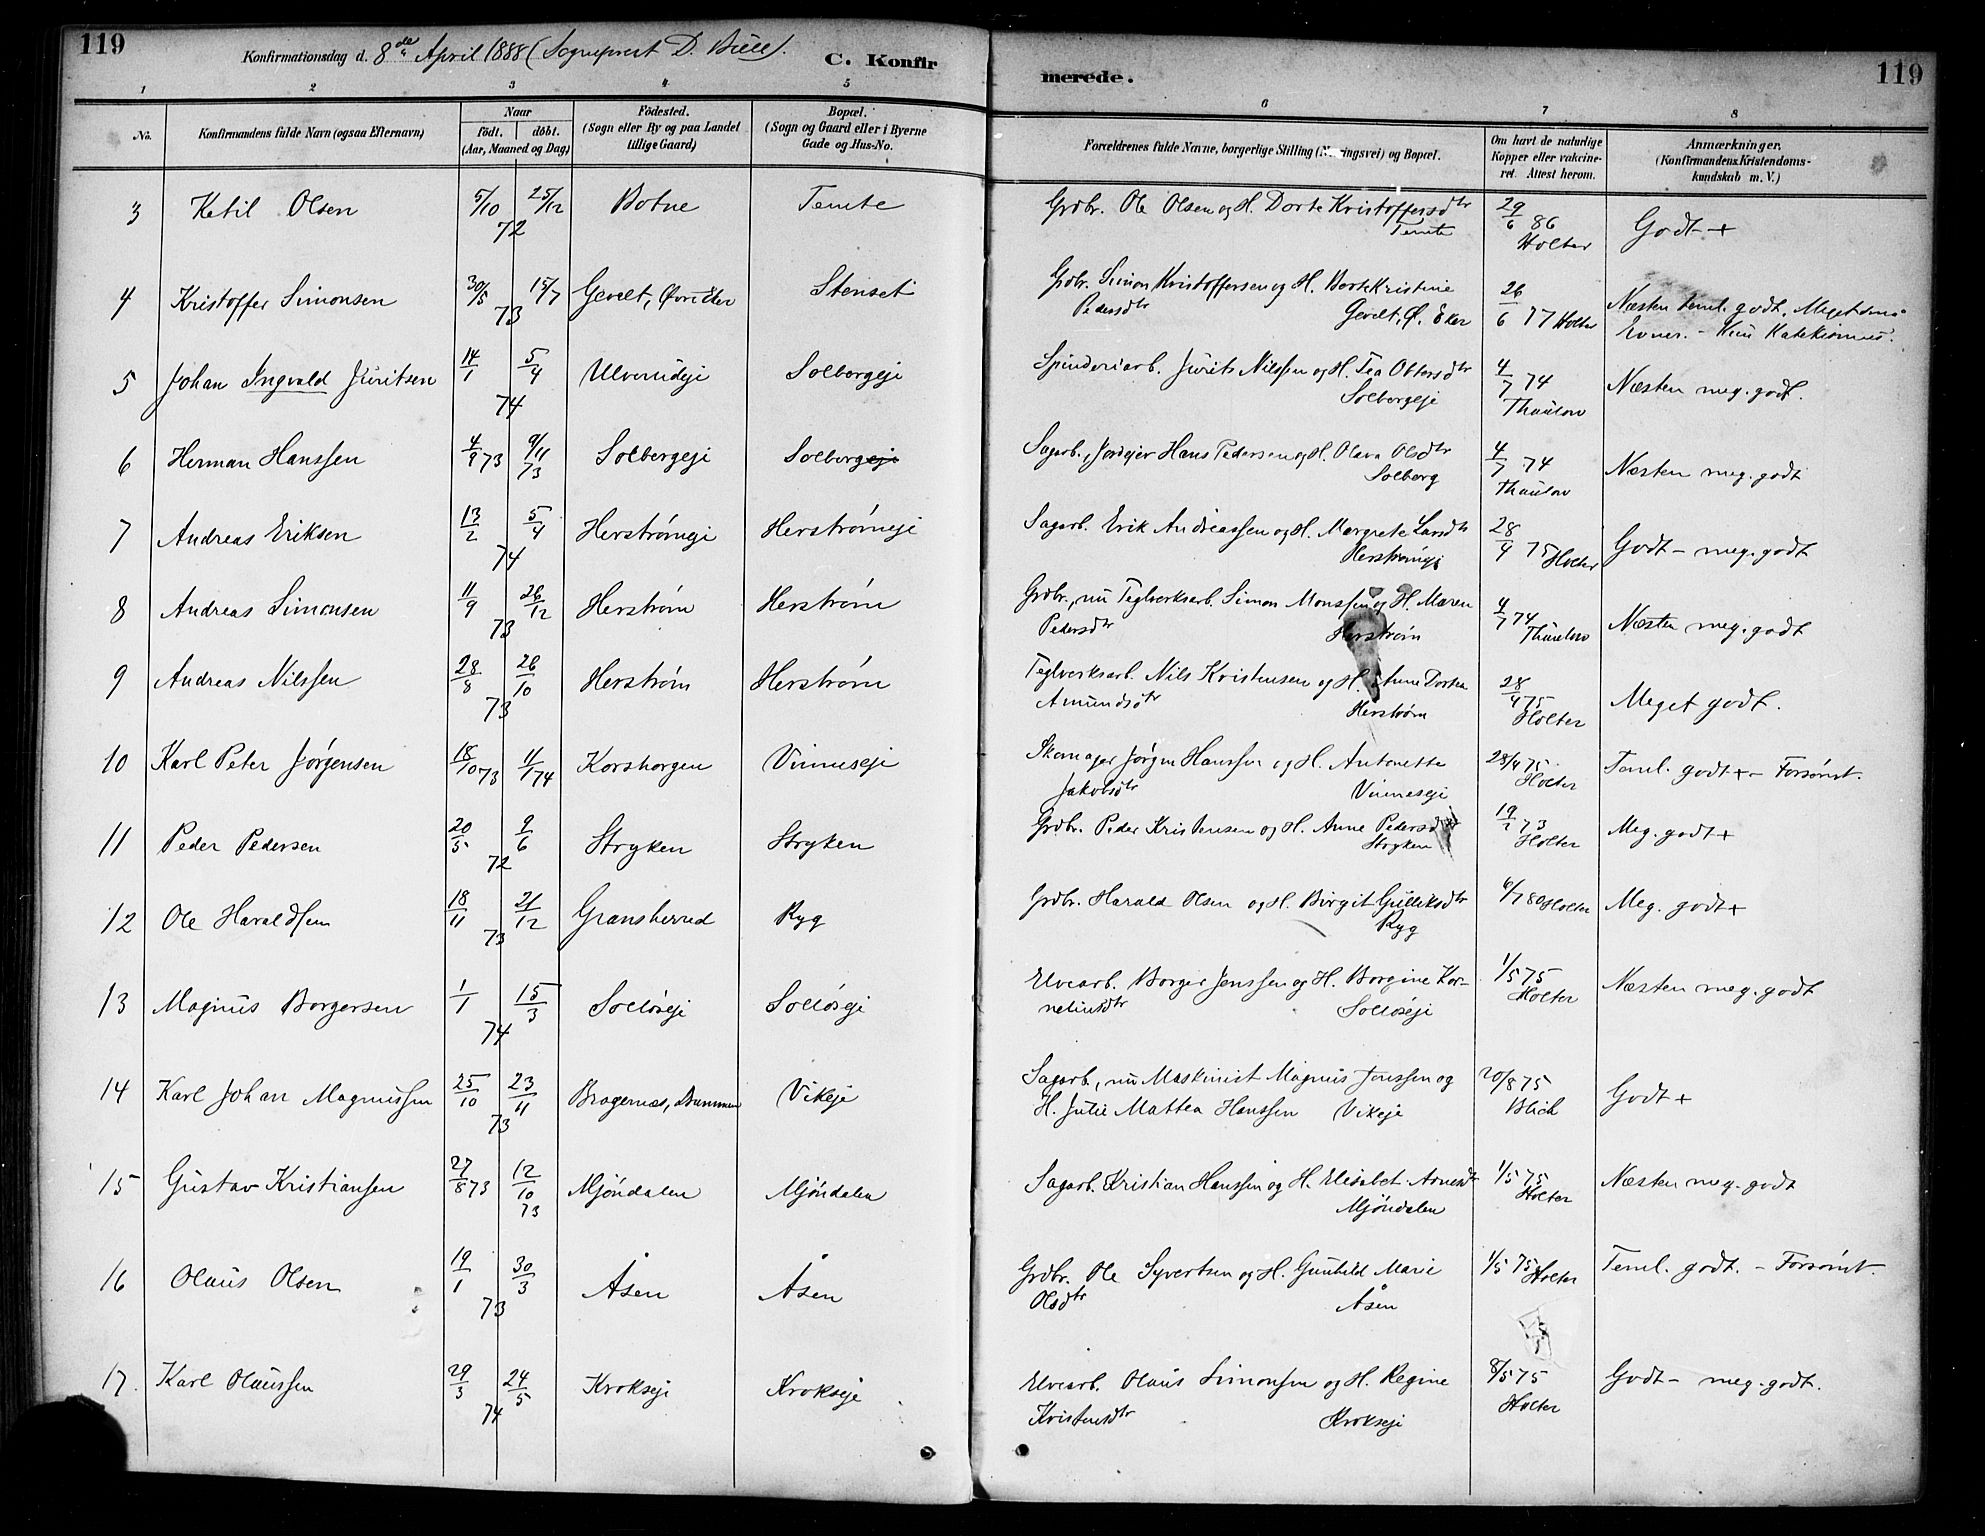 119
Konfirmationsdag d. 8de April 1888 (Sogneprest D. Bull).
C. Konfir
merede.
119
1 2 3 4 5 6 7 8
No.
Konfirmandens fulde Navn (ogsaa Efternavn)
Naar
født. døbt.
(Aar, Maaned og Dag)
Fødested.
(Sogn eller By og paa Landet
tillige Gaard)
Bopæl.
(Sogn og Gaard eller i Byerne
Gade og Hus-No.
Forældrenes fulde Navne, borgerlige Stilling (Næringsvei) og Bopæl.
Om havt de naturlige
Kopper eller vakcine-
ret. Attest herom.
Anmærkninger.
(Konfirmandens Kristendoms-
kundskab m. V.)
3 Ketil Olsen 5/10 25/12 72 Botne Temte Grdbr. Ole Olsen og H. Dorte Kristoffersdtr 29/6 86 Godt +
Temte Holter
4 Kristoffer Simonsen 30/5 15/7 73 Gevelt, Øvre Eker Stenset Grdbr. Simon Kristoffersen og H. Berte Kristine 26/6 77 Holter Næsten teml. godt. Meget smaa
Pedersdtr Gevelt, Ø. Eker Evner. - Kun Katekismus.
5 Johan Ingvald Juritsen 14/1 5/4 74 Ulverudeje Solbergeje Spinderiarb. Jurits Nilssen og H. Tea Ottersdtr 4/7 74 Næsten meg. godt.
Solbergeje Thaulow
6 Herman Hanssen 4/9 73 9/11 73 Solbergeje Solbergeje Sagarb., Jordejer Hans Pedersen og H. Olava Olsdtr 4/7 74 Næsten meg. godt
Solberg Thaulow
7 Andreas Eriksen 13/2 5/4 74 Herstrømeje Herstrømeje Sagarb. Erik Andreassen og H. Margrete Larsdtr 28/4 75 Holter Godt - meg. godt
Herstrømeje
8 Andreas Simonsen 11/9 26/12 73 Herstrøm Herstrøm Grdbr., nu Teglverksarb. Simon Monssen og H. Maren 4/7 74 Næsten meg. godt
Pedersdtr Herstrøm Thaulow
9 Andreas Nilssen 28/8 26/10 73 Herstrøm Herstrøm Teglverksarb. Nils Kristensen og H. Anne Dortea 28/4 75 Meget godt.
Amundsdtr Herstrøm Holter
10 Karl Peter Jørgensen 18/10 73 11/1 74 Korshorgen Vinneseje Skomager Jørgen Hanssen og H. Antonette 28/4 75 Teml. godt + - Forsømt.
Jakobsdtr Vinneseje Holter
11 Peder Pedersen 20/5 9/6 72 Stryken Stryken Grdbr. Peder Kristensen og H. Anne Pedersdtr 73 Meg. godt +
Stryken Holter
12 Ole Haraldsen 18/11 21/12 73 Gransherred Ryg Grdbr. Harald Olsen og H. Birgit Gulliksdtr 6/7 80 Holter Meg. godt +
Ryg
13 Magnus Borgersen 1/1 15/3 74 Solløseje Solløseje Elvearb. Borger Jenssen og H. Borgine Kor- 1/5 75 Næsten meg. godt
neliusdtr Solløseje Holter
14 Karl Johan Magnussen 25/10 23/11 73 Bragernæs, Drammen Vikeje Sagarb., nu Maskinist Magnus Jenssen og 20/8 75 Godt +
H. Julie Mattea Hanssen Vikeje Blich
15 Gustav Kristiansen 27/8 73 12/10 73 Mjøndalen Mjøndalen Sagarb. Kristian Hanssen og H. Elisabet Arnesdtr 1/5 75 Næsten meg. godt
Mjøndalen Holter
16 Olaus Olsen 19/1 30/3 73 Åsen Åsen Grdbr. Ole Syvertsen og H. Gunhild Marie 1/5 75 Holter Teml. godt. - Forsømt.
Olsdtr Åsen
17. Karl Olaussen 29/3 24/5 74 Krokseje Krokseje Elvearb. Olaus Simonsen og H. Regine 8/5 75 Godt - meg. godt.
Kristensdtr Krokseje Holter